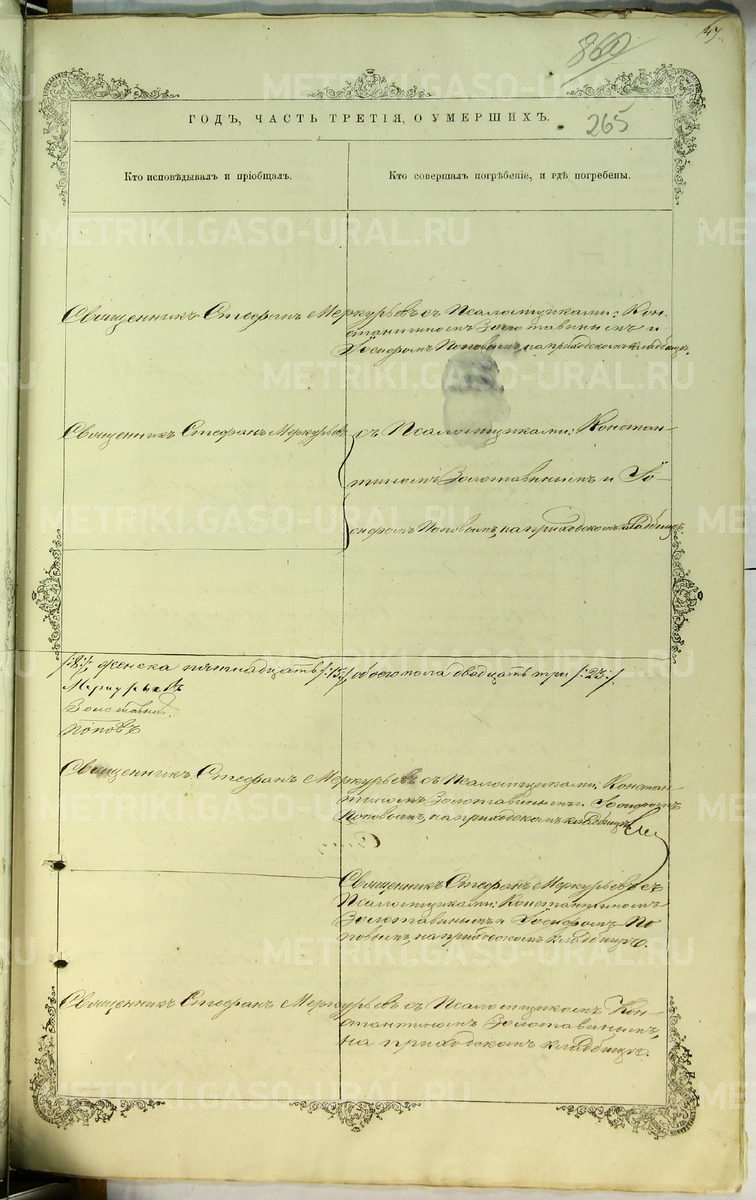 47.
860
ГОДЪ, ЧАСТЬ ТРЕТІЯ, О УМЕРШИХЪ.
265
Кто исповѣдывалъ и пріобщалъ.
Кто совершалъ погребеніе, и гдѣ погребены.
Священникъ Стефанъ Меркурьевъ съ Псаломщиками: Кон-
стантиномъ Золотавинымъ и
Іосифомъ Поповымъ, на приходскомъ кладбищѣ.
Священникъ Стефанъ Меркурьевъ
съ Псаломщиками: Констан-
тиномъ Золотавинымъ и Іо-
сифомъ Поповымъ, на приходскомъ кладбищѣ.
/:8:/, женска пятнадцать /:15:/, обоего пола двадцать три /:23:/.
Меркурьевъ
Золотавинъ
Поповъ
Священникъ Стефанъ Меркурьевъ съ Псаломщиками: Констан-
тиномъ Золотавинымъ и Іосифомъ
Поповымъ, на приходскомъ кладбищѣ.
Священникъ Стефанъ Меркурьевъ съ
Псаломщиками: Константиномъ
Золотавинымъ и Іосифомъ По-
повымъ, на приходскомъ кладбищѣ.
Священникъ Стефанъ Меркурьевъ съ Псаломщикомъ Кон-
стантиномъ Золотавинымъ,
на приходскомъ кладбищѣ.
METRIKI.GASO-URAL.RU